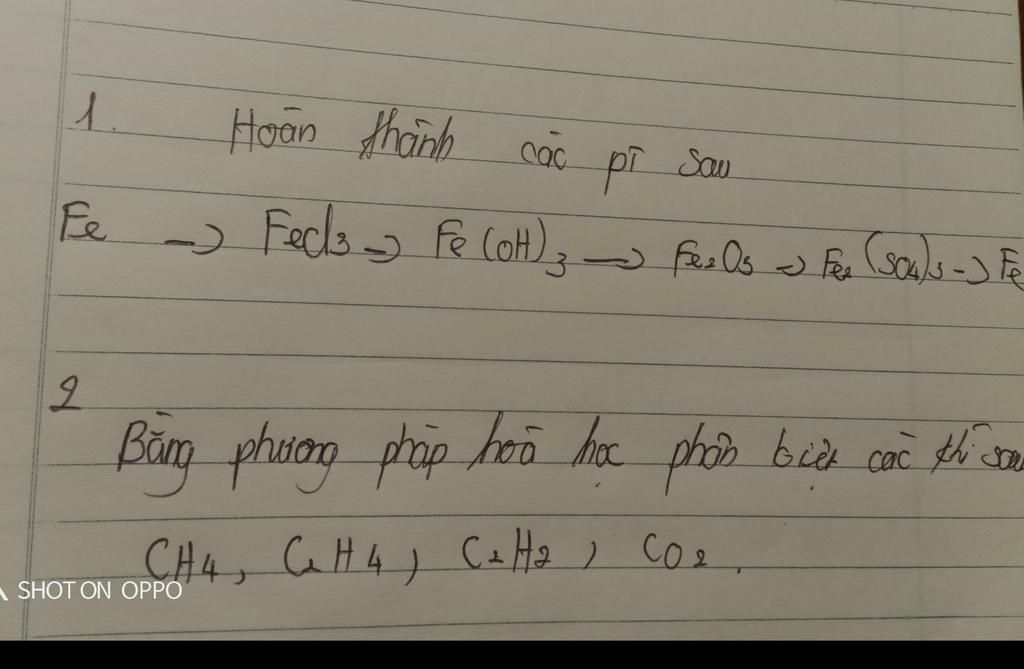 1. Hoàn thành các pt sau
Fe → FeCl3 → Fe(OH)3 → Fe2O3 → Fe2(SO4)3 → Fe
2
Bằng phương pháp hoá học phân biệt các khí sau
CH4, C2H4, C2H2, CO2.
SHOT ON OPPO